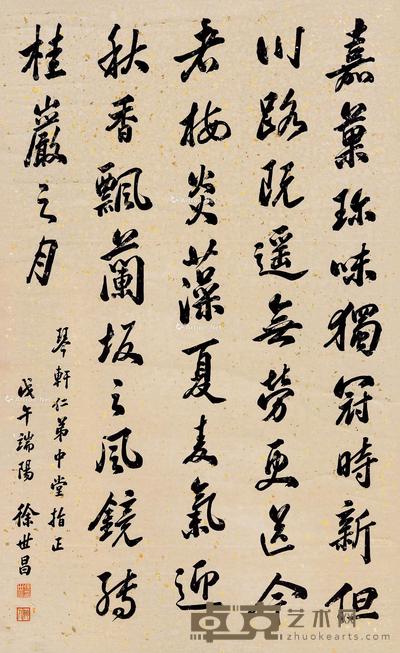 嘉菓珎味獨冠時新但
川路既遥無勞更送今
者梅炎藻夏麦氣迎
秋香飄蘭坂之風鏡轉
桂巖之月
琴軒仁弟中堂指正
戊午端陽 徐世昌
卓克艺术网
zhuokearts.com